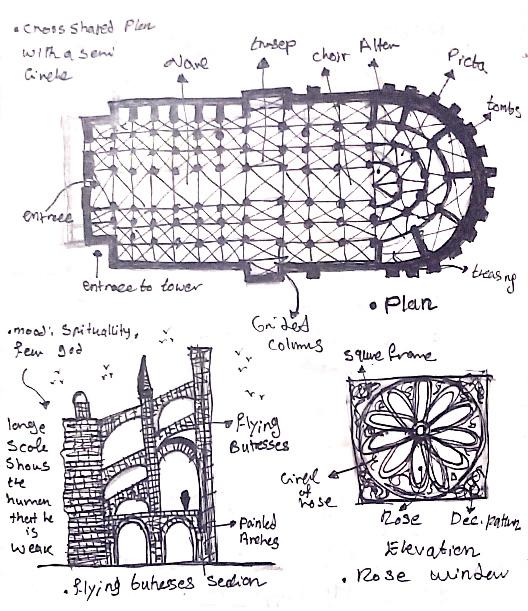 • Cross Shared Plan
with a semi
Circle
Nave
transep
choir
Alter
Picta
tombs
entrace
entrace to tower
treasing
Grided
Columns
• Plan
• mood: Spirtuallity,
fear god
large
Scale
Shows
the
human
that he
is
weak
Flying
Butresses
Pointed
Arches
• flying butresses section
squre frame
Circul
of
rose
Rose
Elevation
• Rose window